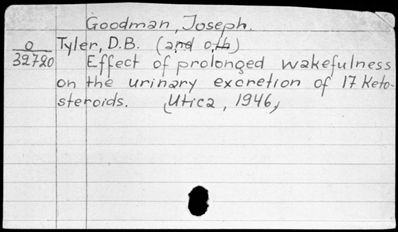 Goodman, Joseph.
o Tyler, D.B. (and oth)
39720 Effect of prolonged wakefulness
on the urinary excretion of 17 Keto-
steroids. (Utica, 1946)